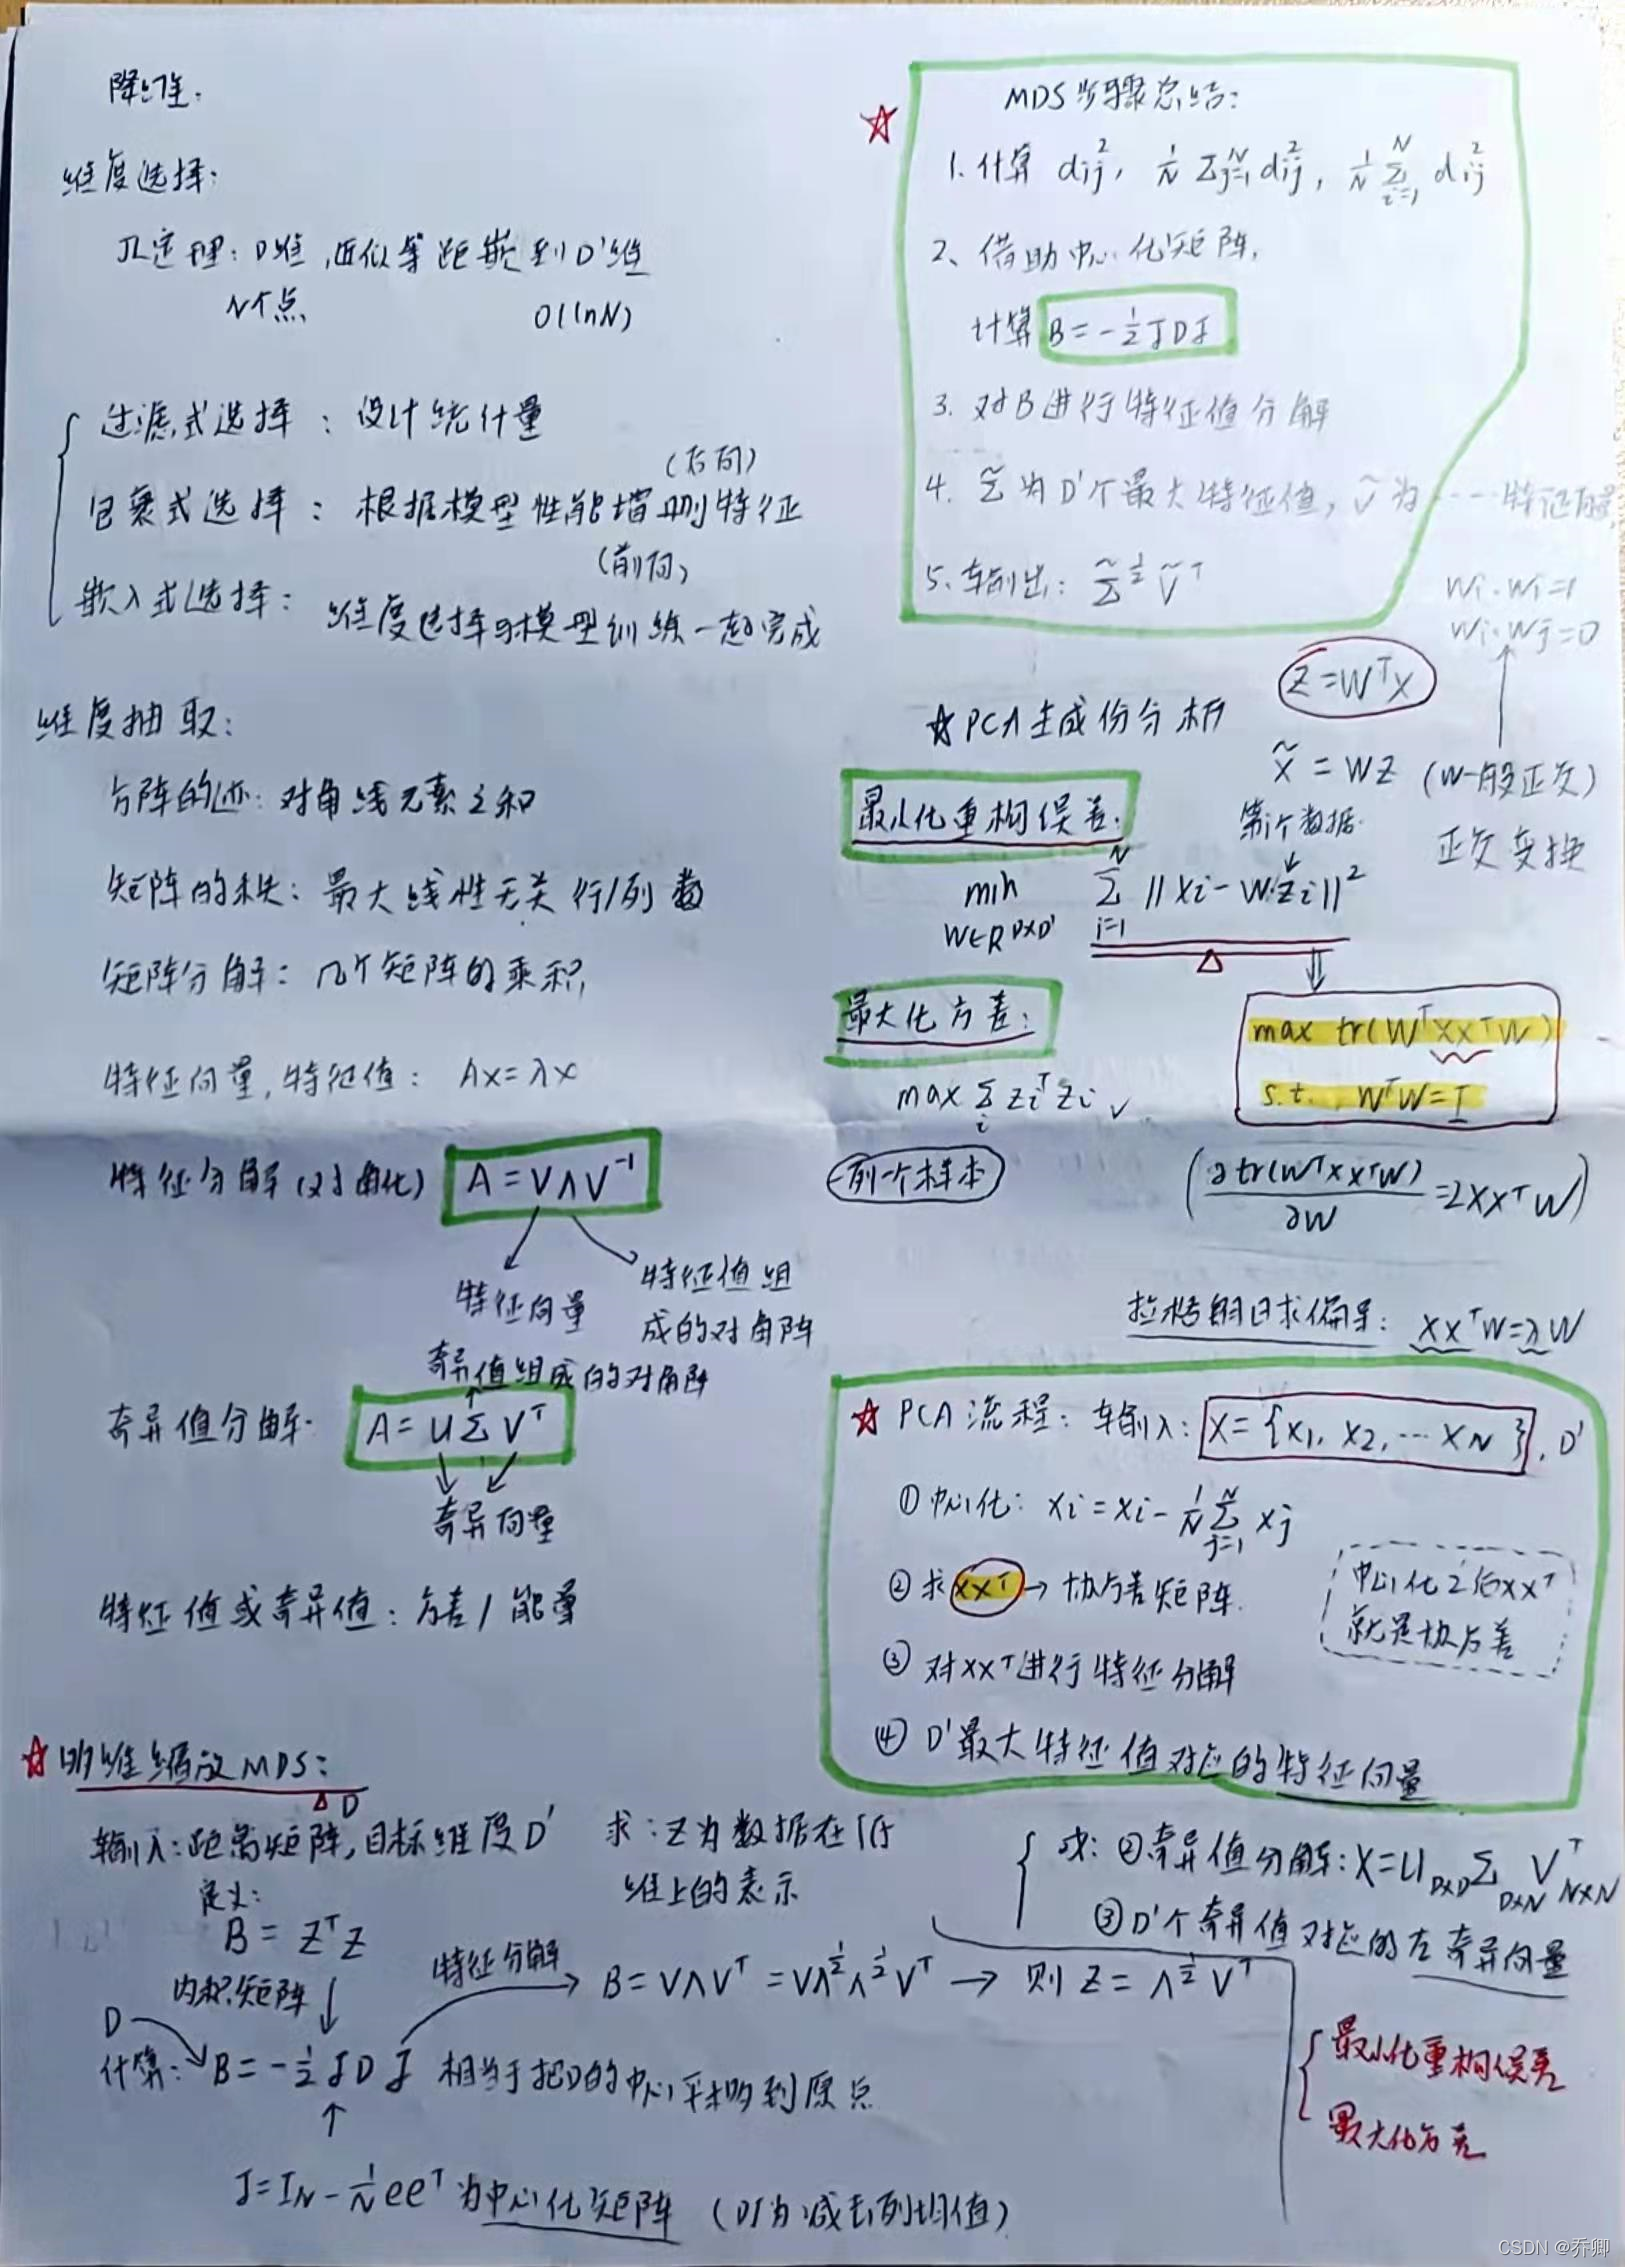 降维:
维度选择:
JL定理: D维, 近似等距嵌到D'维
N个点 O(lnN)
过滤式选择: 设计统计量
(后向)
包裹式选择: 根据模型性能增删特征
(前向)
嵌入式选择: 维度选择与模型训练一起完成
维度抽取:
方阵的迹: 对角线元素之和
矩阵的秩: 最大线性无关行/列数
矩阵分解: 几个矩阵的乘积
特征向量, 特征值: Ax=λx
特征分解(对角化) A=VΛV⁻¹
特征向量
特征值组
成的对角阵
奇异值组成的对角阵
奇异值分解. A=UΣVᵀ
奇异向量
特征值或奇异值: 方差/能量
☆ MDS步骤总结:
1. 计算 dij², 1/N Σj=1^N dij², 1/N Σi=1^N dij²
2、借助中心化矩阵,
计算 B=-½JDJ
3. 对B进行特征值分解
4. Σ̃为D'个最大特征值, Ṽ为……特征向量
5. 输出: Σ̃^½ Ṽᵀ
Wi·Wi=1
Wi·Wj=0
Z=WᵀX
☆PCA主成份分析
X̃=WZ (W一般正交)
正交变换
最小化重构误差:
第i个数据
min Σi=1^N ||Xi-WZi||²
W∈R^D×D'
最大化方差:
max Σi Ziᵀ Zi
max tr(WᵀXXᵀW)
s.t. WᵀW=I
一列一个样本
(∂tr(WᵀXXᵀW)/∂W=2XXᵀW)
拉格朗日求偏导: XXᵀW=λW
☆ PCA流程: 输入: X={X1, X2, ··· XN}, D'
① 中心化: Xi=Xi-1/N Σj=1^N Xj
② 求XXᵀ→协方差矩阵.
中心化之后XXᵀ
就是协方差
③ 对XXᵀ进行特征分解
④ D'最大特征值对应的特征向量
或: ②奇异值分解: X=U_D×D Σ_D×N Vᵀ_N×N
③D'个奇异值对应的左奇异向量
最小化重构误差
最大化方差
☆ MDS:
D
输入: 距离矩阵, 目标维度D' 求: Z为数据在低
维上的表示
定义:
B=ZᵀZ
内积矩阵
特征分解
B=VΛVᵀ=VΛ^½Λ^½Vᵀ → 则 Z=Λ^½Vᵀ
D
计算: B=-½JDJ 相当于把D的中心平移到原点
J=I_N-1/N eeᵀ为中心化矩阵 (DJ为减去列均值)
CSDN @乔卿